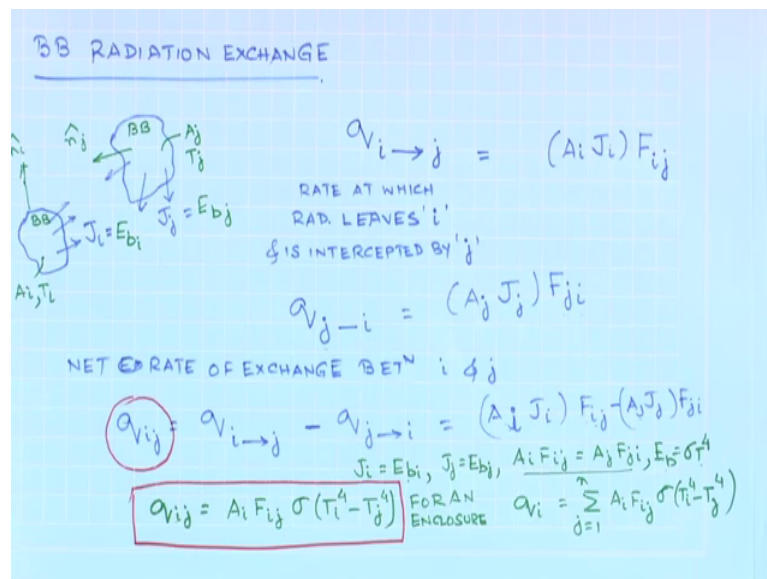 BB RADIATION EXCHANGE
n̂i
n̂j
BB
Aj
Tj
BB
Ji = Ebi
Jj = Ebj
Ai, Ti
q i→j = (Ai Ji) Fij
RATE AT WHICH
RAD. LEAVES 'i'
& IS INTERCEPTED BY 'j'
q j–i = (Aj Jj) Fji
NET RATE OF EXCHANGE BETN i & j
qij = q i→j – q j→i = (Ai Ji) Fij – (Aj Jj) Fji
Ji = Ebi, Jj = Ebj, Ai Fij = Aj Fji, Eb = σT⁴
qij = Ai Fij σ (Ti⁴ – Tj⁴)
FOR AN
ENCLOSURE
qi = Σ j=1 n Ai Fij σ (Ti⁴ – Tj⁴)